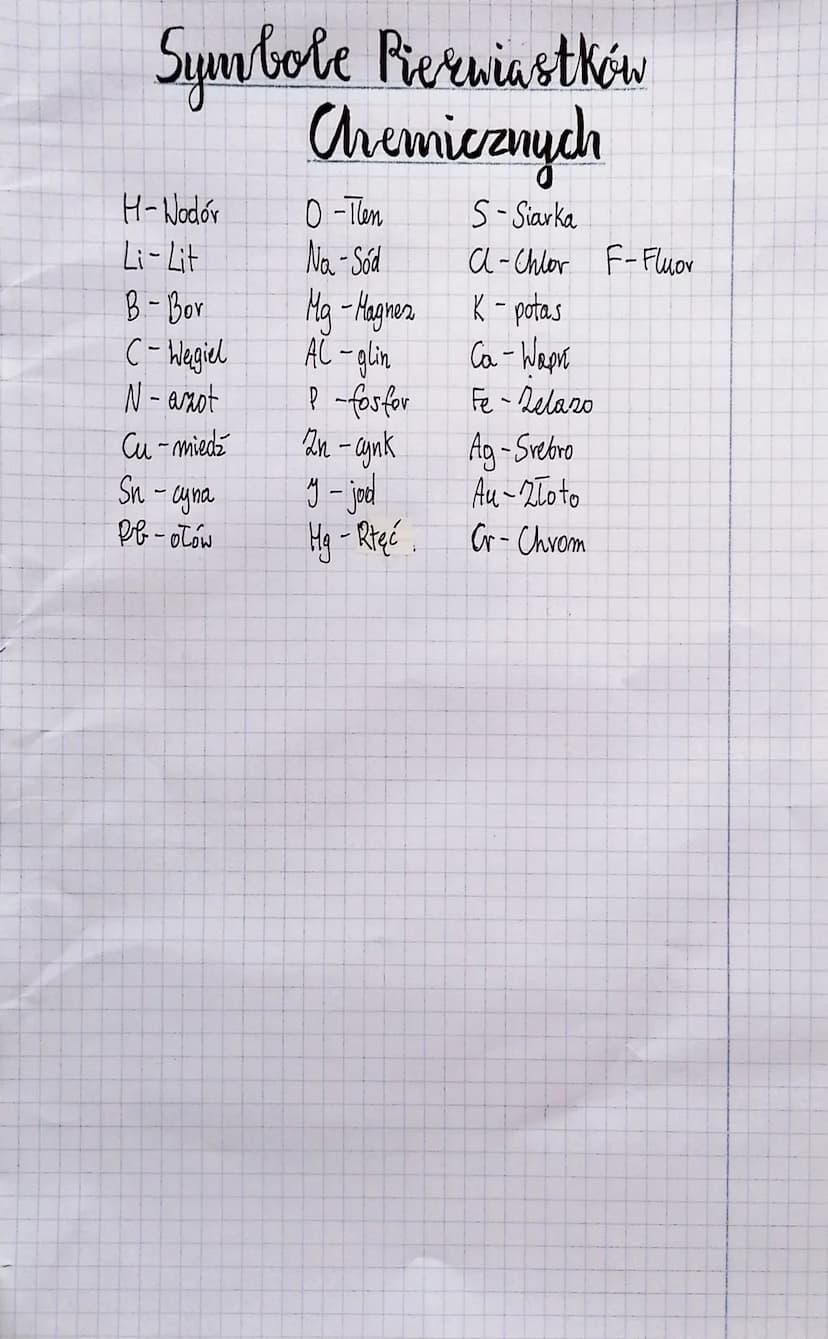 Symbole Pierwiastków
Chemicznych
H-Wodór O-Tlen S-Siarka
Li-Lit Na-Sód Cl-Chlor F-Fluor
B-Bor Mg-Magnez K-potas
C-Węgiel Al-glin Ca-Wapń
N-azot P-fosfor Fe-Żelazo
Cu-miedź Zn-cynk Ag-Srebro
Sn-cyna J-jod Au-Złoto
Pb-ołów Hg-Rtęć. Cr-Chrom